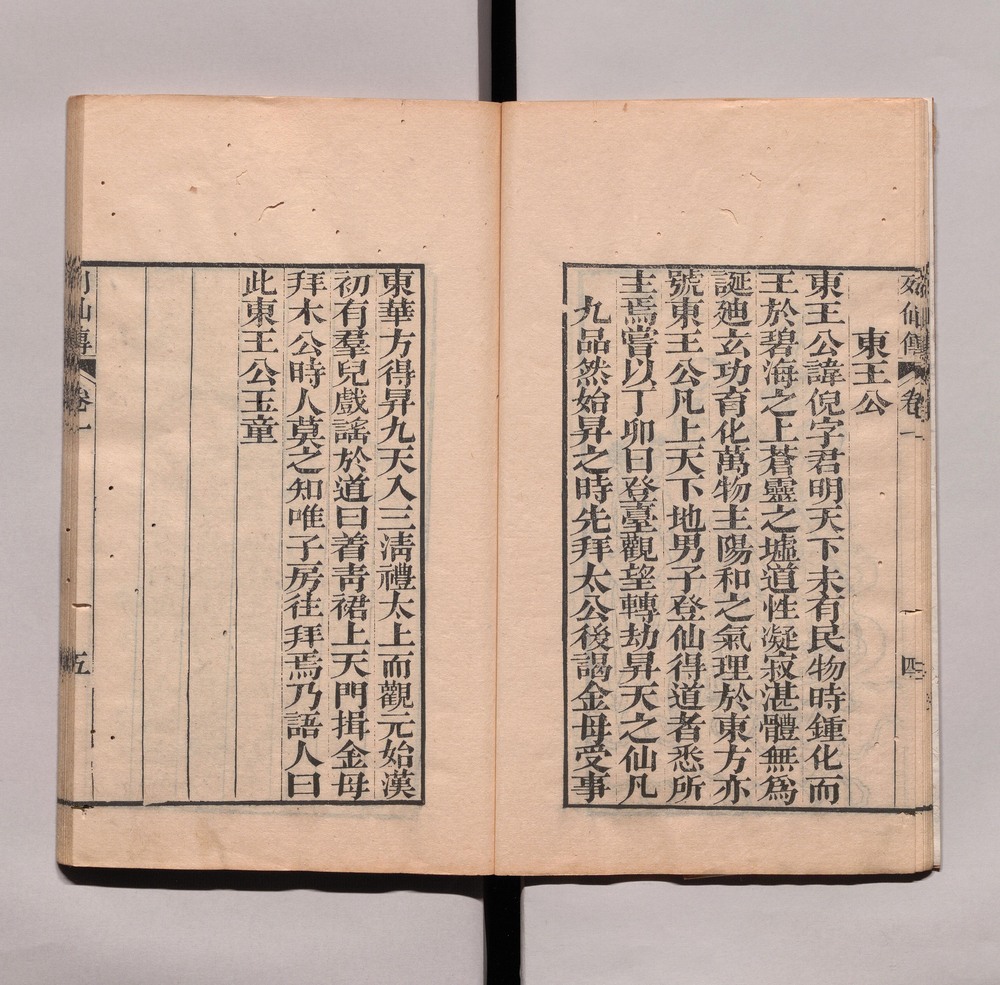 列仙傳 卷一 四
東王公
東王公諱倪字君明天下未有民物時鍾化而
王於碧海之上蒼靈之墟道性凝寂湛體無爲
誕廸玄功育化萬物主陽和之氣理於東方亦
號東王公凡上天下地男子登仙得道者悉所
主焉嘗以丁卯日登臺觀望轉劫昇天之仙凡
九品然始昇之時先拜太公後謁金母受事
東華方得昇九天入三清禮太上而觀元始漢
初有羣兒戲謠於道曰着青裙上天門揖金母
拜木公時人莫之知唯子房往拜焉乃語人曰
此東王公玉童
列仙傳 卷一 五